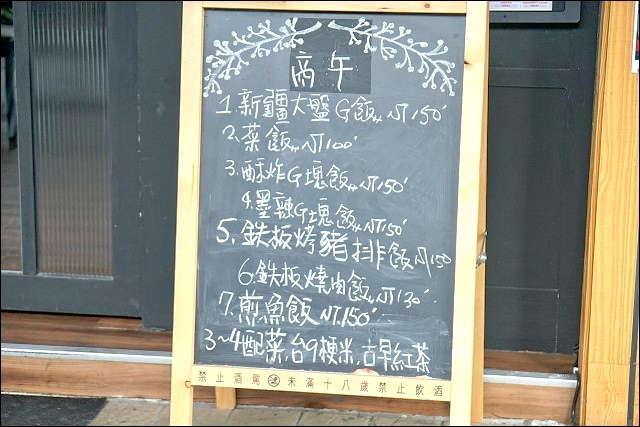 商午
1.新疆大盤G飯...NT.150'
2.菜飯...NT100'
3.酥炸G塊飯...NT.150'
4.墨辣G塊飯...NT.150'
5.鉄板烤豬排飯NT.150
6.鉄板燒肉飯...NT.130'
7.煎魚飯NT.150'
3~4配菜,台9梗米,古早紅茶
禁止酒駕 未滿十八歲禁止飲酒